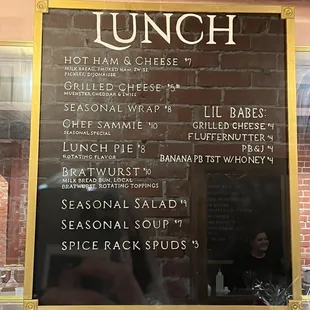 LUNCH
HOT HAM & CHEESE $7
MILK BREAD, SMOKED HAM,
PICKLES, DIJONAISSE
GRILLED CHEESE
MUENSTER, CHEDDAR & SWISS
SEASONAL WRAP $8
CHEF SAMMIE $10
SEASONAL SPECIAL
LUNCH PIE $8
ROTATING FLAVOR
BRATWURST $10
MILK BREAD BUN, LOCAL
BRATWURST, ROTATING TOPPINGS
SEASONAL SALAD $9
SEASONAL SOUP $7
SPICE RACK SPUDS $3
LIL BABES:
GRILLED CHEESE $4
FLUFFERNUTTER $4
PB&J $4
BANANA PB TST W/HONEY $4